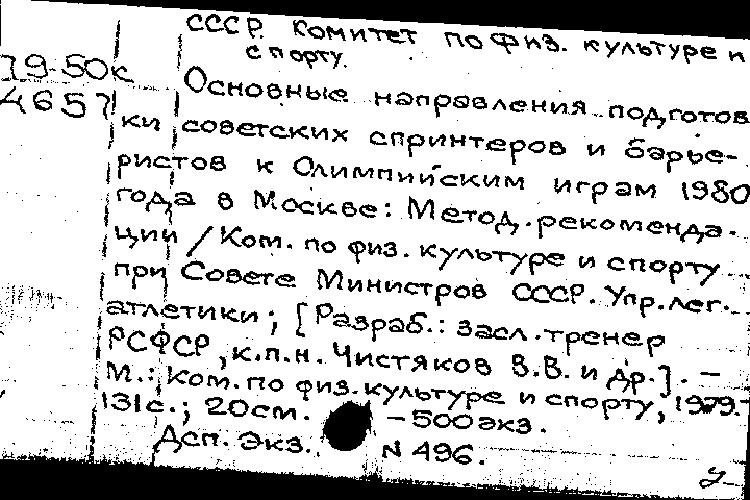 СССР. Комитет по физ. культуре и
спорту.
79-50к
4657
Основные направления подготов
ки советских спринтеров и барье-
ристов к Олимпийским играм 1980
года в Москве: Метод. рекоменда-
ции / Ком. по физ. культуре и спорту
при Совете Министров СССР. Упр. лег.
атлетики; [Разраб.: засл. тренер
РСФСР, к.п.н. Чистяков В.В. и др.]. –
М.: Ком. по физ. культуре и спорту, 1979.-
131с.; 20см. – 500экз.
Дсп. Экз. N 496.